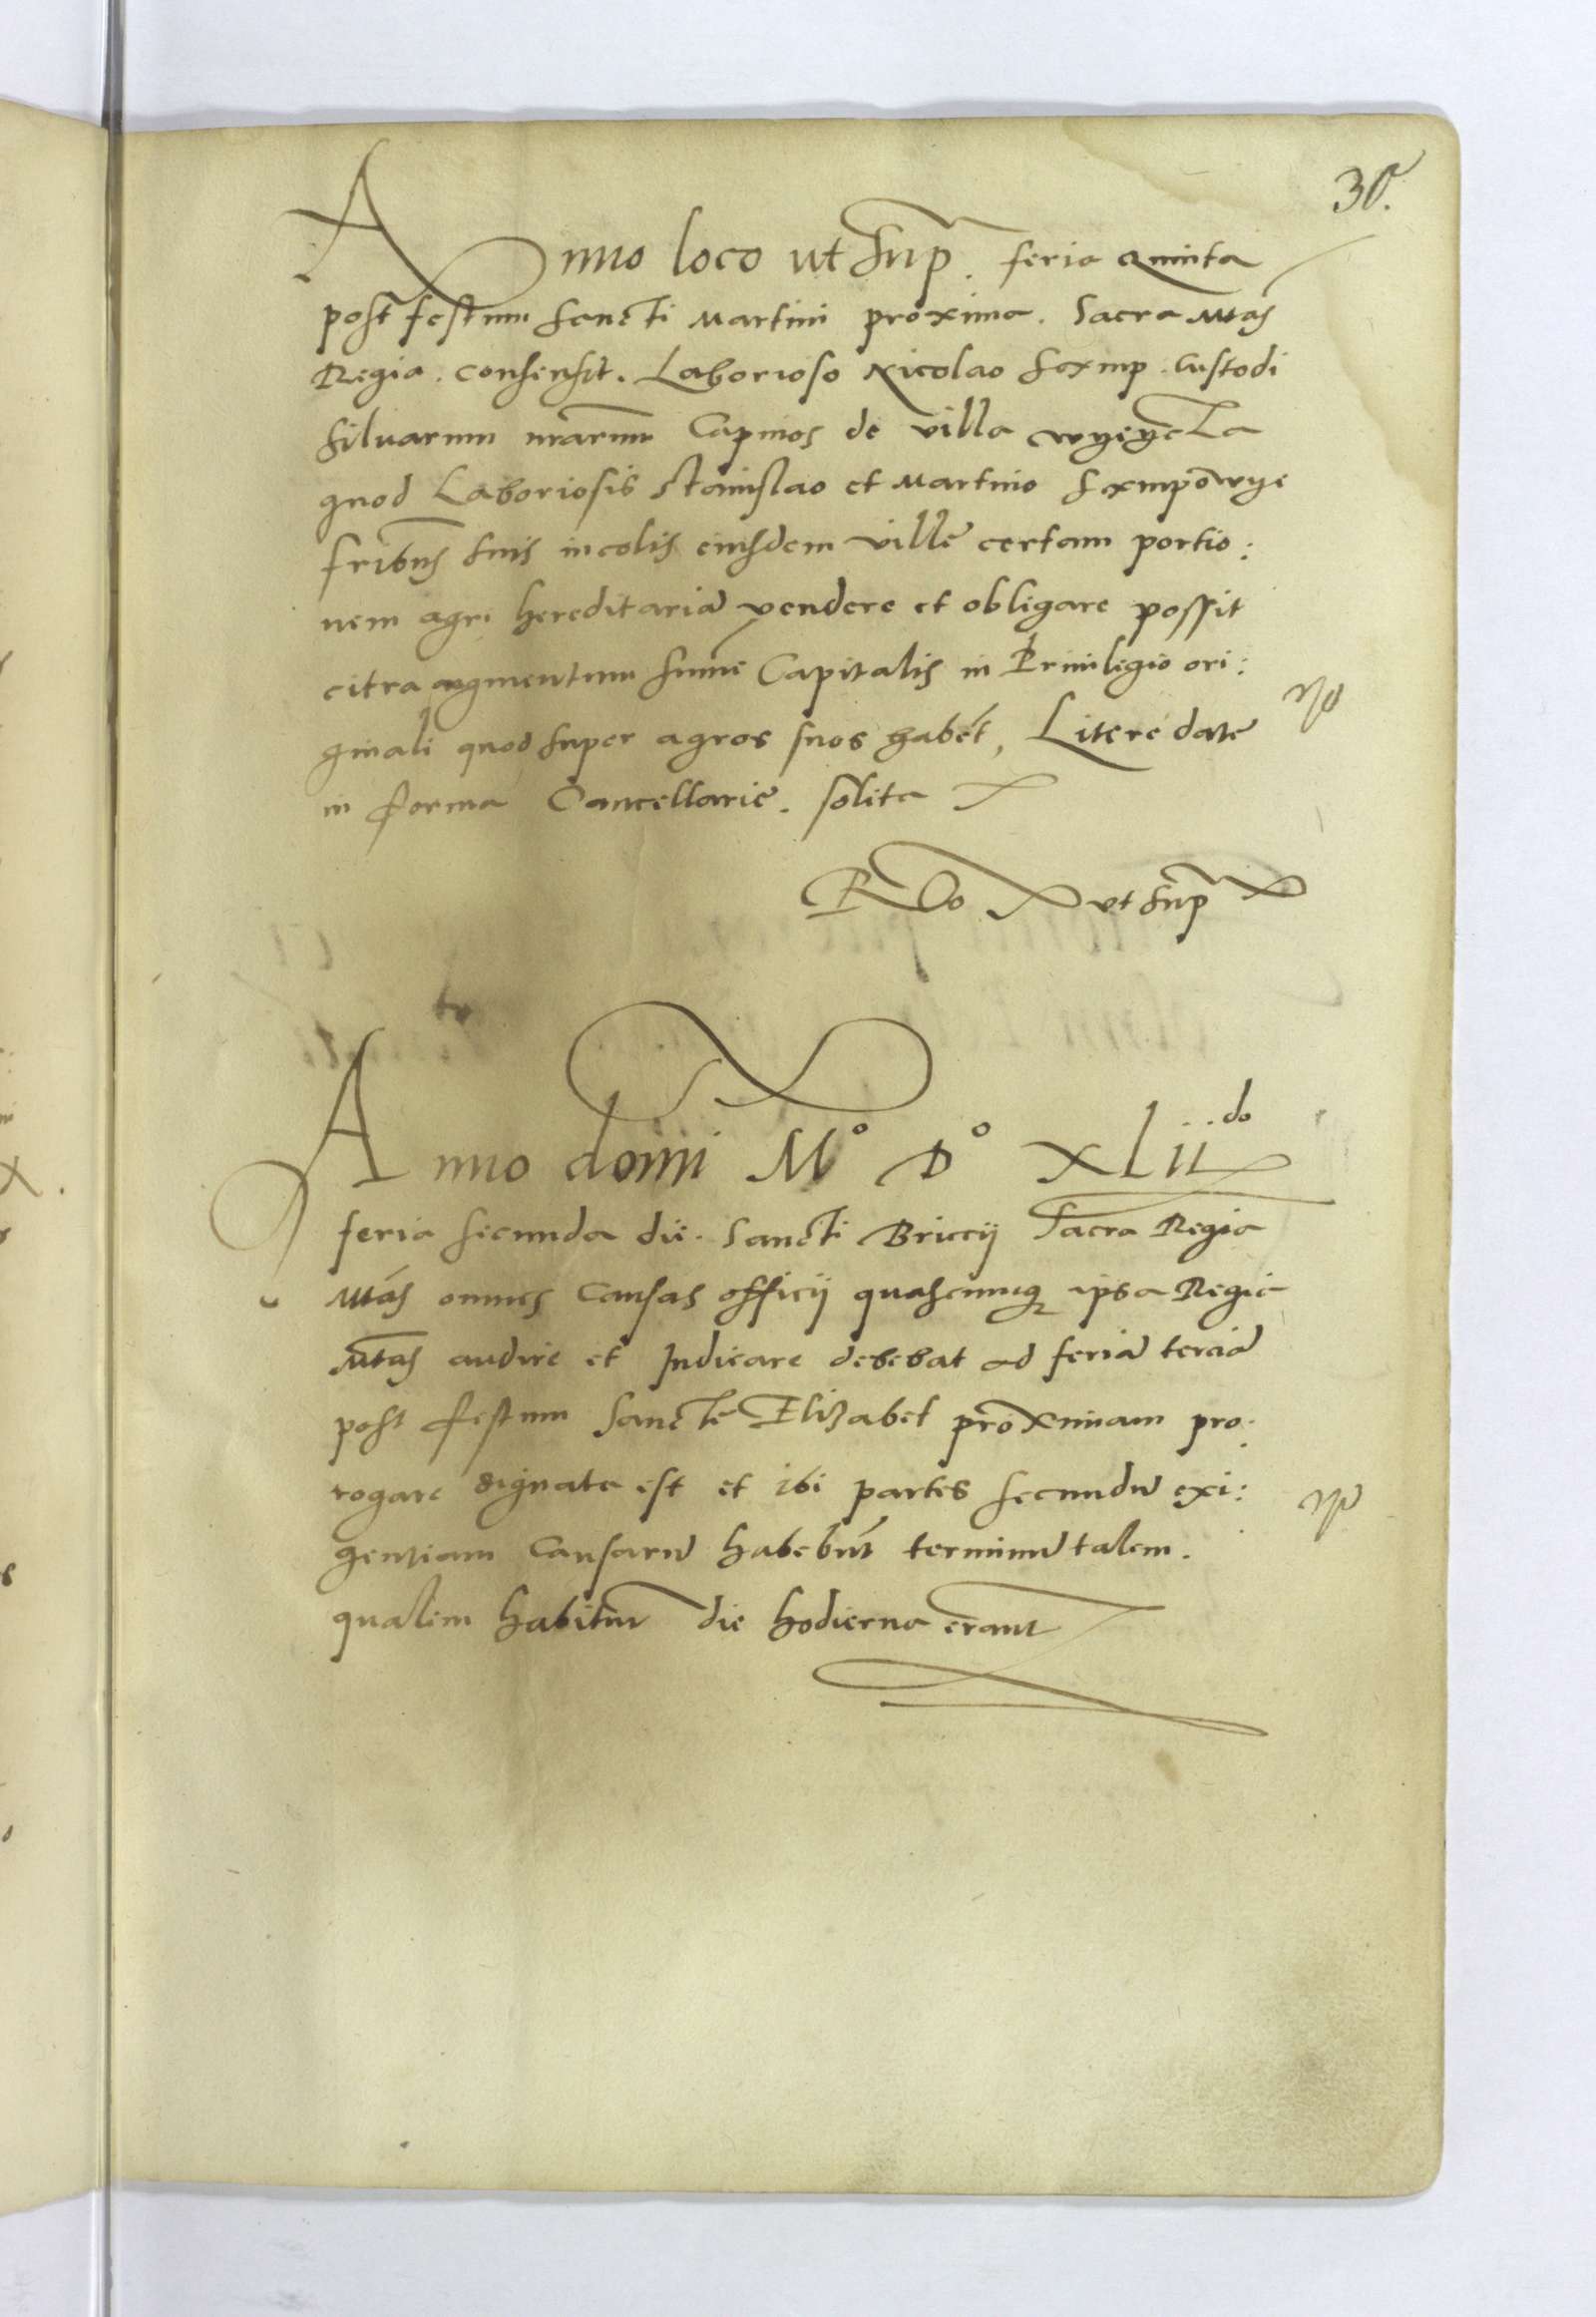 30.
Anno loco ut sup. feria Quinta
post festum sancti Martini proxima. Sacra Mtas
Regia. consensit. Laborioso Nicolao Sexmp. Custodi
silvarum nrarum Capinos de villa
quod Laboriosis Stanislao et Martino
fribus suis incolis eiusdem ville certam portio:
nem agri hereditaria vendere et obligare possit
citra augmentum sume Capitalis in Privilegio ori:
ginali quod super agros suos habet, Litere date
in forma Cancellarie. solita
ut sup
Anno domi Mo Do XLiido
feria secunda die. Sancti Briccij Sacra Regia
Mtas omnes causas officij quascunq ipsa Regia
Mtas audire et Judicare debebat ad feria tercia
post festum Sancte Elizabet proximam pro:
rogare dignata est et ibi partes secundu exi:
gentiam causaru habebut terminu talem.
qualem habitur die hodierna erant